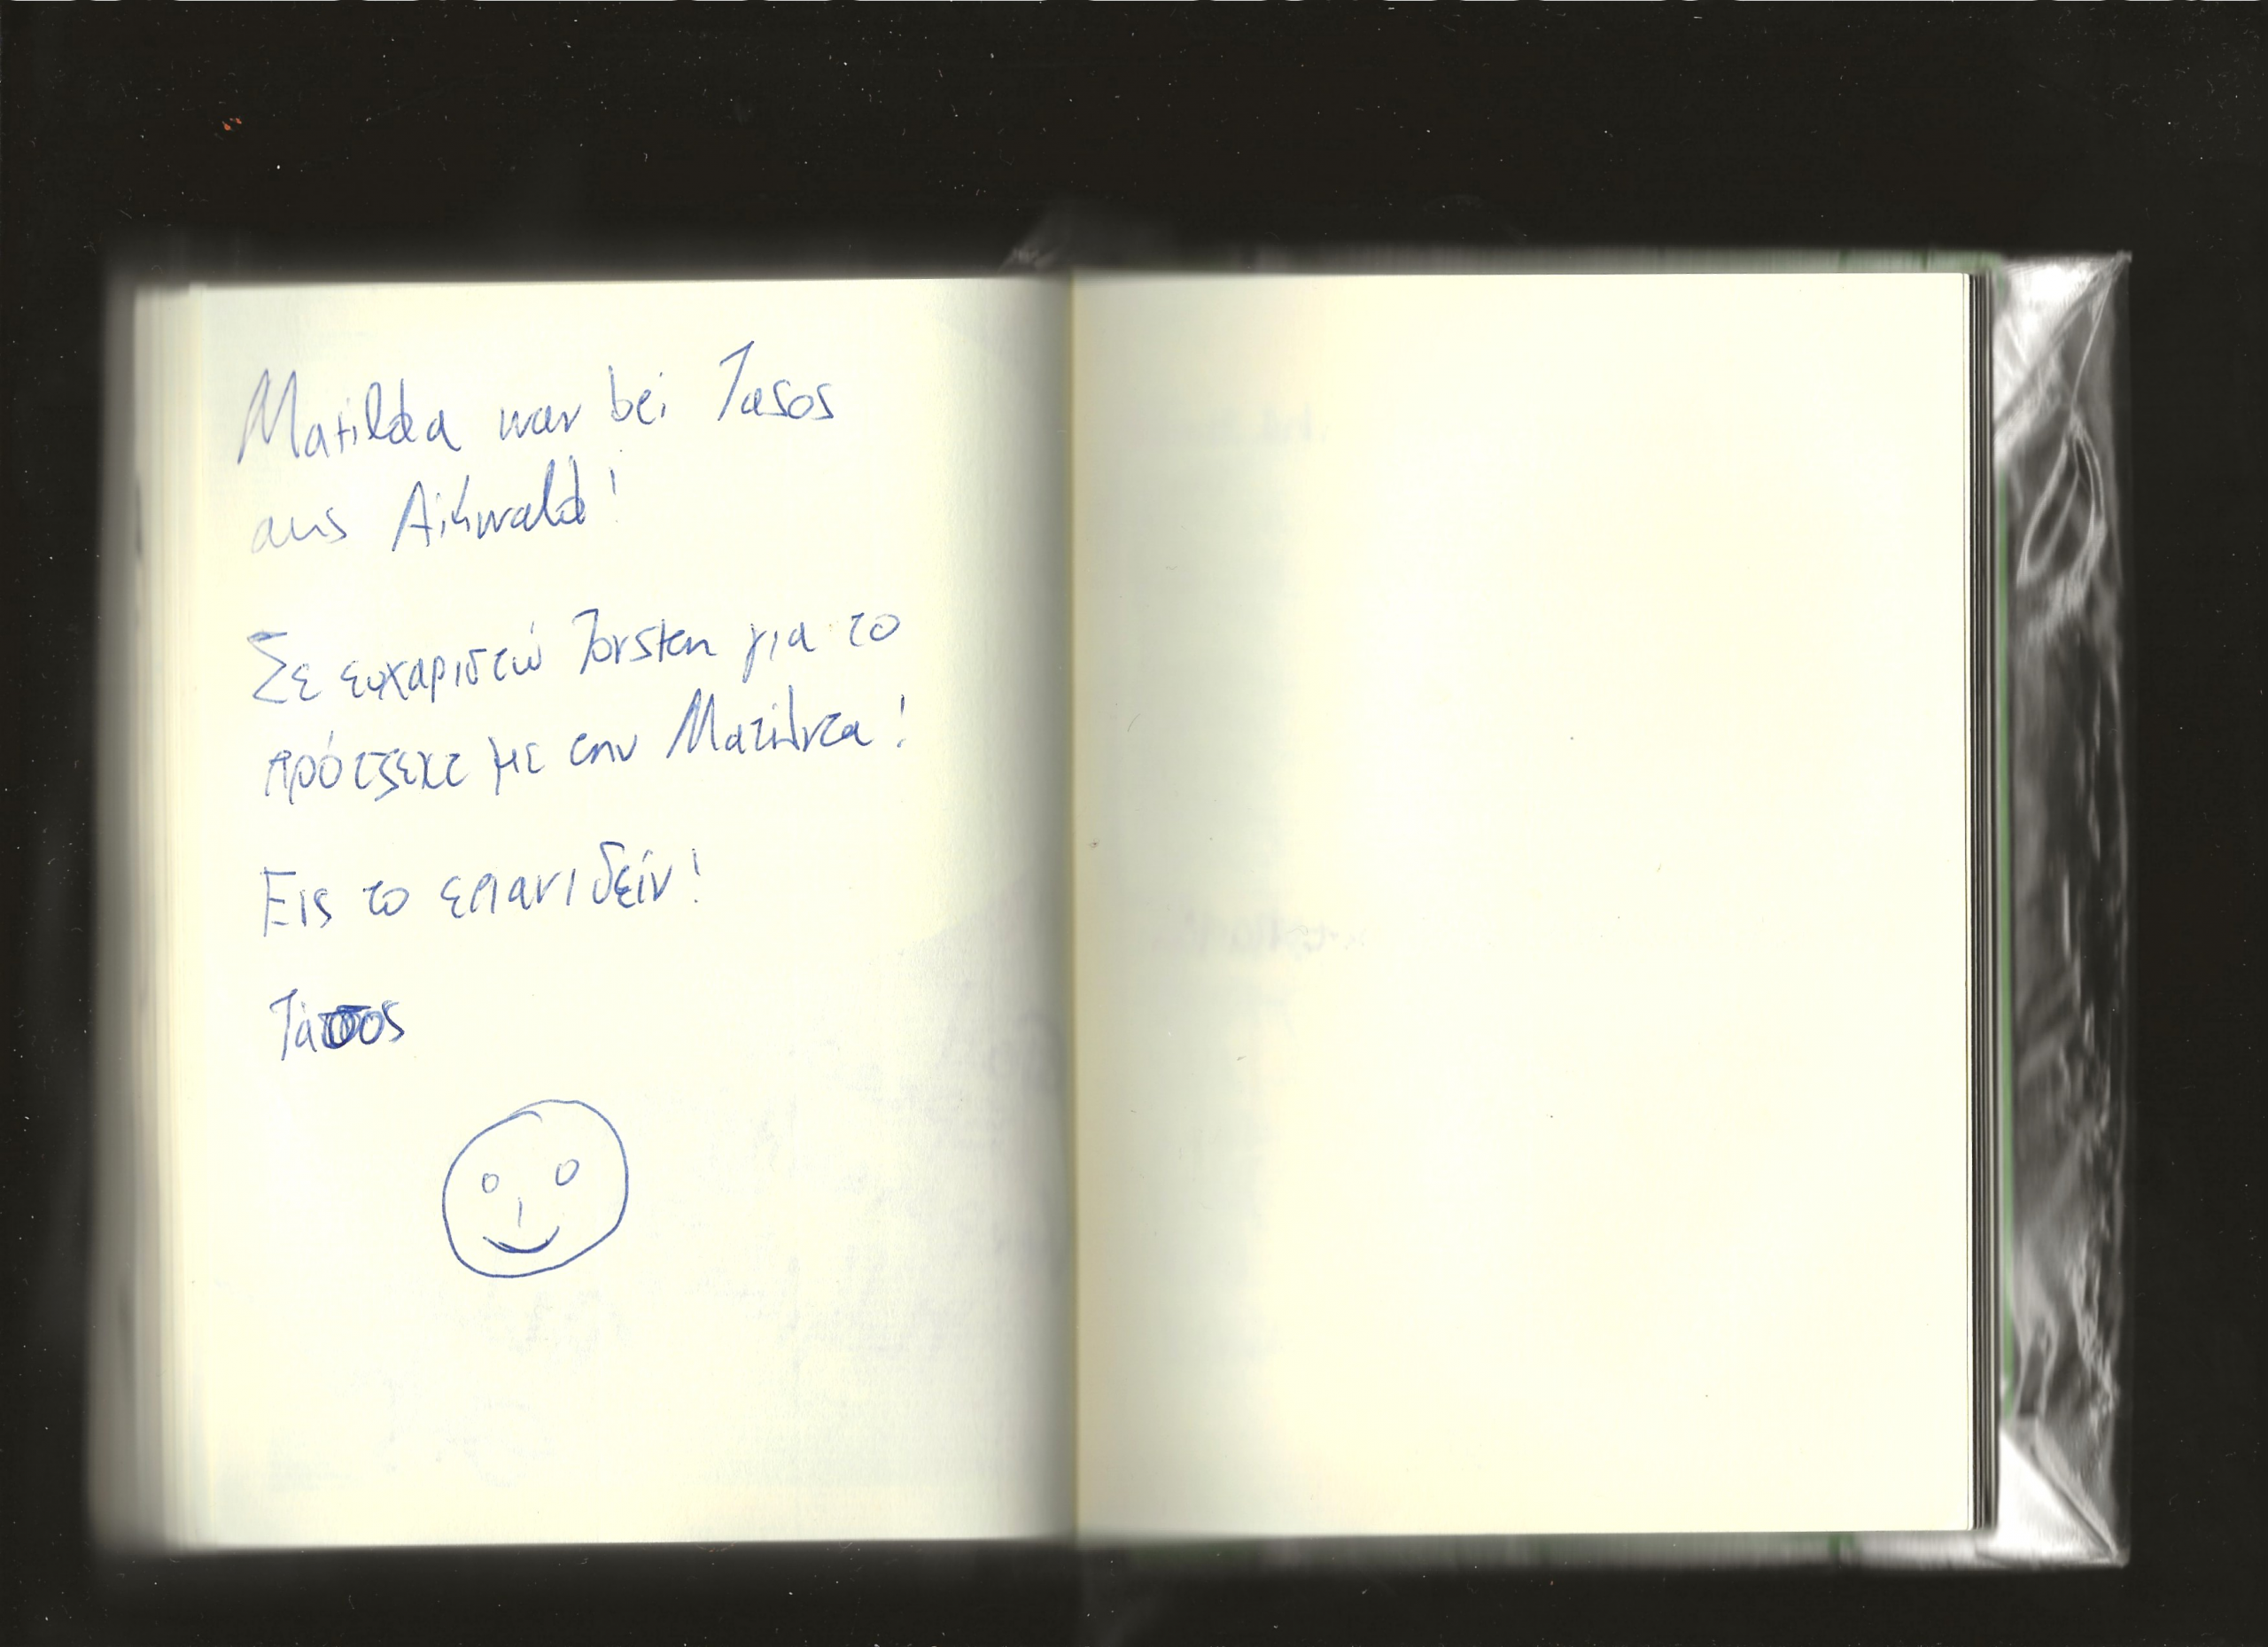 Matilda war bei Tasos
aus Aichwald!
Σε ευχαριστώ Torsten για το
πρότζεκτ με την Ματίλντα!
Εις το επανιδείν!
Τάσος